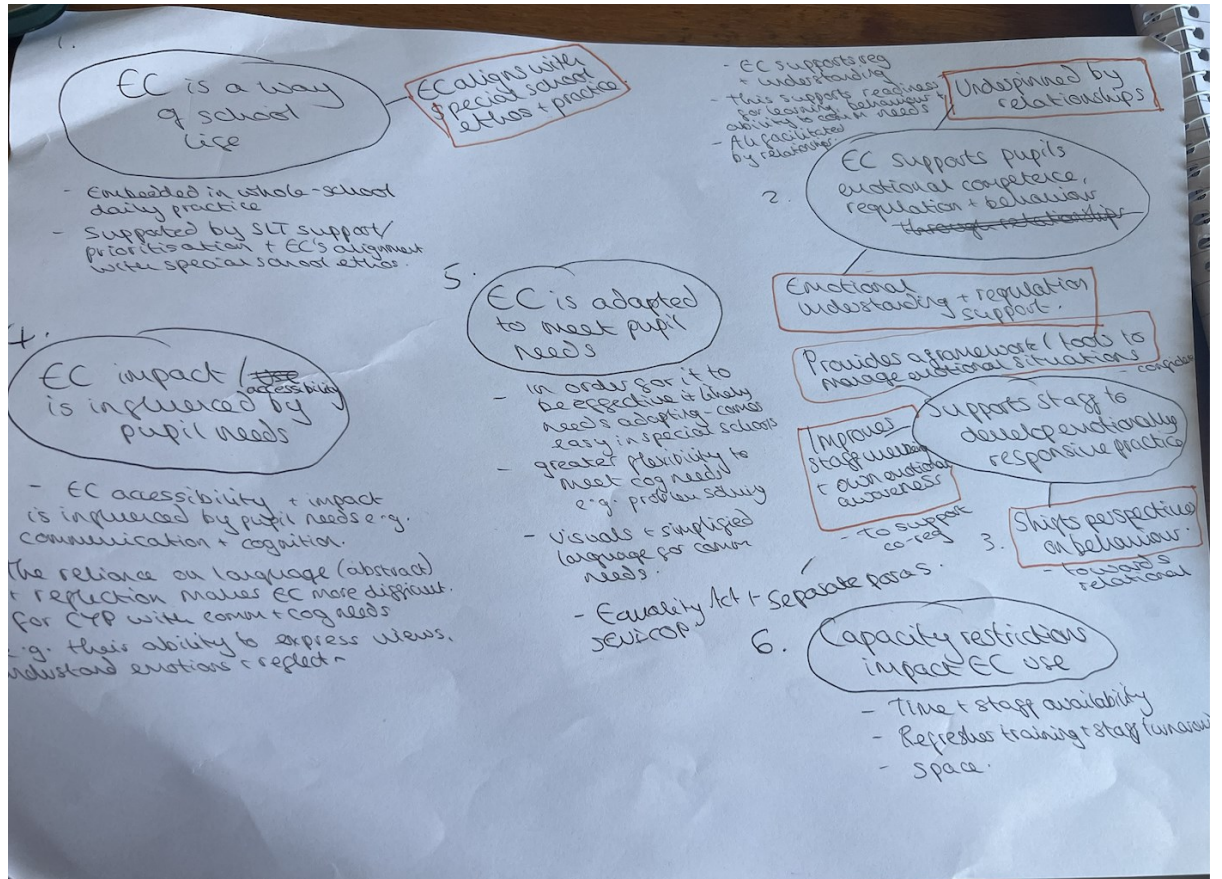 1.
EC is a way
of school
life
EC aligns with
special school
ethos + practice
- Embedded in whole-school
daily practice
- Supported by SLT support/
prioritisation + EC's alignment
with special school ethos.
- EC supports reg
+ understanding
- this supports readiness
for learning, behaviour +
ability to comm needs
- All facilitated
by relationships.
Underpinned by
relationships
2.
EC supports pupils
emotional competence,
regulation + behaviour
through relationships
Emotional
understanding + regulation
support.
Provides a framework / tools to
manage emotional situations
3.
Supports staff to
develop emotionally
responsive practice
Improves
staff
+ own emotional
awareness
- To support
co-reg
Shifts perspective
on behaviour.
- towards
relational
4.
EC impact / use
accessibility
is influenced by
pupil needs
- EC accessibility + impact
is influenced by pupil needs e.g.
communication + cognition.
The reliance on language (abstract)
+ reflection makes EC more difficult
for CYP with comm + cog needs
e.g. their ability to express views,
understand emotions + reflect
5.
EC is adapted
to meet pupil
needs
- In order for it to
be effective it likely
needs adapting - comes
easy in special schools
- greater flexibility to
meet cog needs
e.g. problem solving
- Visuals + simplified
language for comm
needs.
- Equality Act + Separate paras.
SENDCOP
6.
Capacity restrictions
impact EC use
- Time + staff availability
- Refresher training + staff turnaround
- Space.